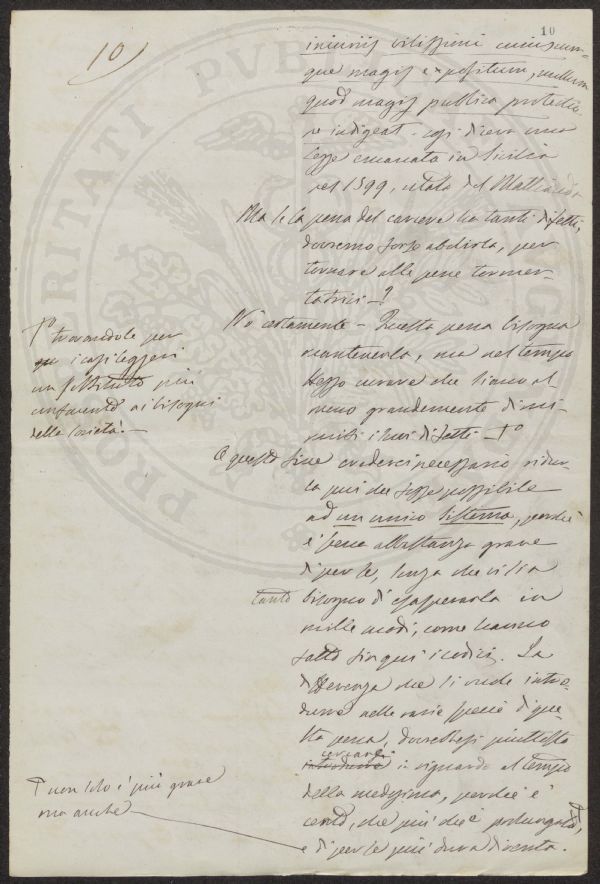 10
10
iniuriis vilissimi cuiuscum-
que magis expositum, nullum
quod magis publica protectio-
ne indigeat - così diceva una
legge emanata in Sicilia
nel 1399, citata dal
Ma se la pena del carcere ha tanti difetti,
dovremo forse abolirla, per
tornare alle pene tormen-
tatrici - ?
No certamente - Questa pena bisogna
mantenerla, ma nel tempo
stesso curare che siano al
meno grandemente dimi-
nuiti i suoi difetti - +o
+o trovandole per
i casi leggeri
un sostituto più
conforme ai bisogni
della Società. -
A questo fine crederei necessario ridur-
la più che fosse possibile
ad un unico sistema, perchè
è pena abbastanza grave
di per se, senza che vi sia
tanto bisogno d'esasperarla in
mille modi, come hanno
fatto sin qui i codici. La
differenza che si vuole intro-
durre nelle varie specie di que-
sta pena, dovrebbesi piuttosto
cercare
introdurre in riguardo al tempo
della medesima, perchè è
certo, che più che è prolungata,
e di per se più dura diventa.
non solo è più grave
ma anche
PVBLICAE